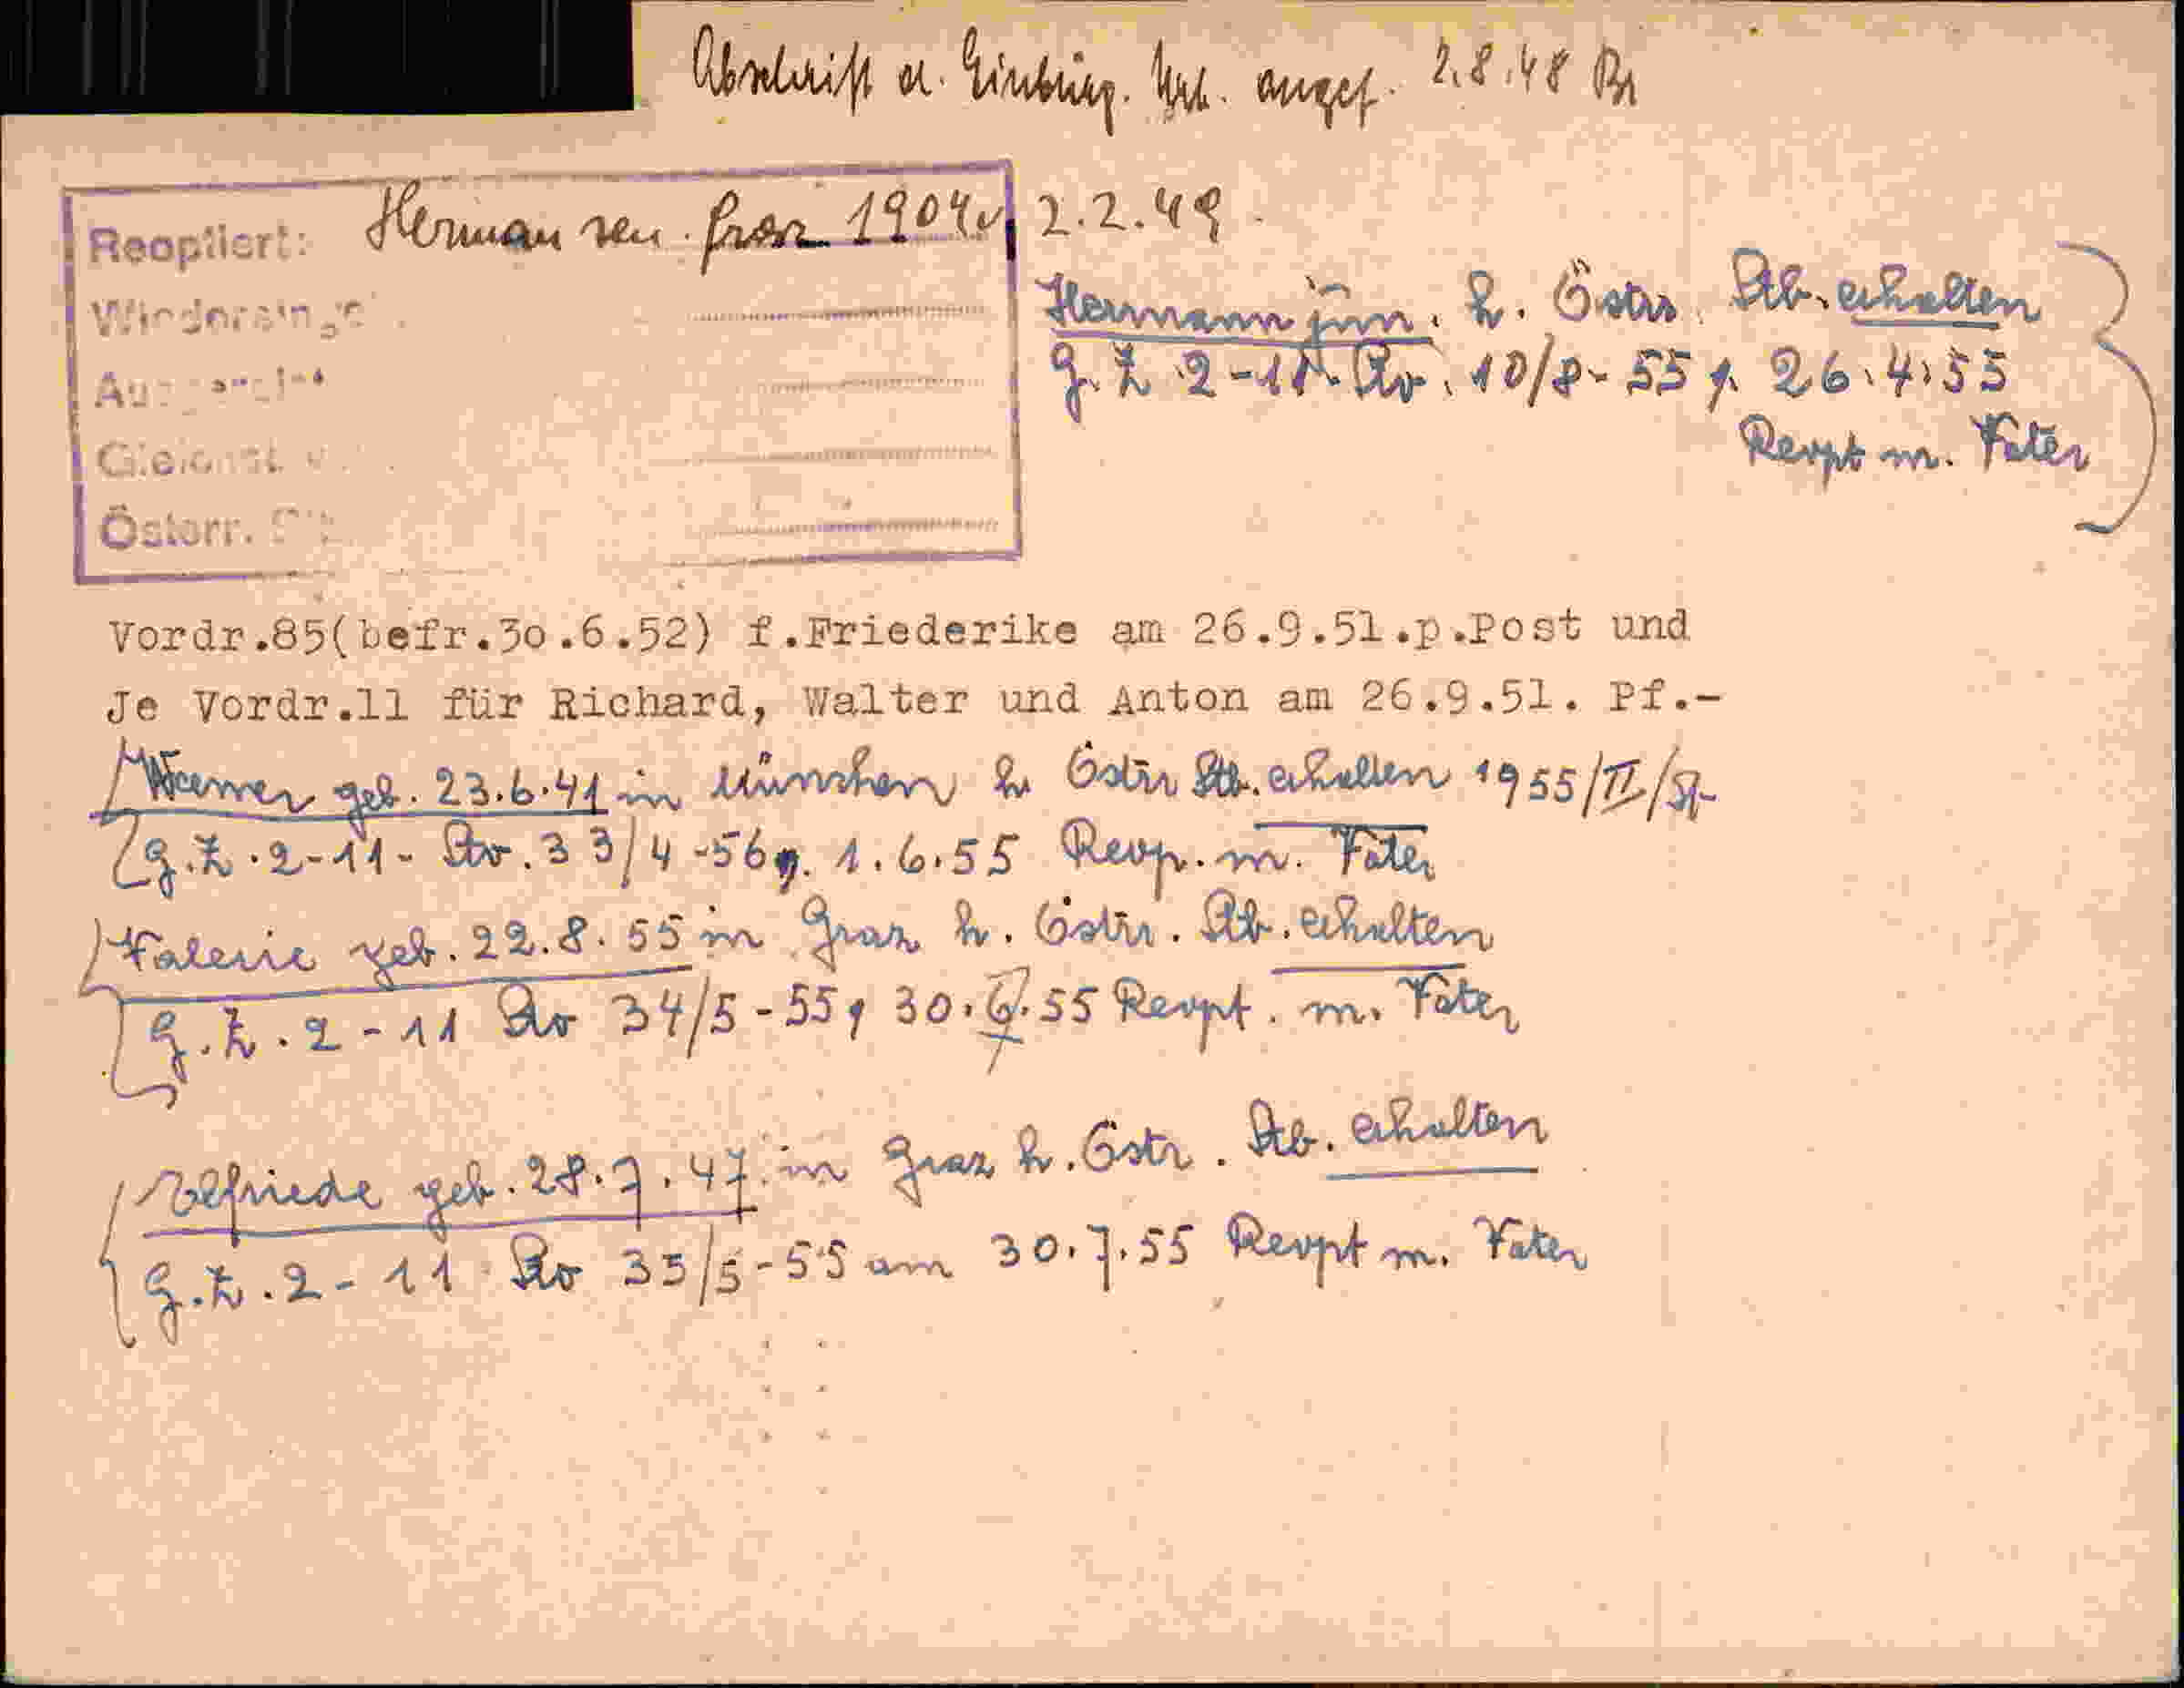 Abschrift d. Einbürg. Urk. angef. 2.8.48
Reoptiert: Herman sen. Graz 1904 2.2.49.
Österr.
Hermann jun. h. Östr. Stb. erhalten
G.Z 2-11. Str. 10/8-55 26.4.55
Reopt m. Vater
Vordr.85(befr.30.6.52) f.Friederike am 26.9.51.p.Post und
Je Vordr.11 für Richard, Walter und Anton am 26.9.51. Pf.-
Werner geb. 23.6.41 in München h Östr Stb. erhalten 1955/II/
G.Z.2-11- Str. 33/4-56 1.6.55 Reop. m. Vater
Valerie geb. 22.8.55 in Graz h. Östr. Stb. erhalten
G.Z.2-11 Str 34/5-55 30. 55 Reopt. m. Vater
Elfriede geb. 28.7.47 in Graz h. Östr. Stb. erhalten
G.Z.2-11 Str 35/5-55 am 30.7.55 Reopt m. Vater